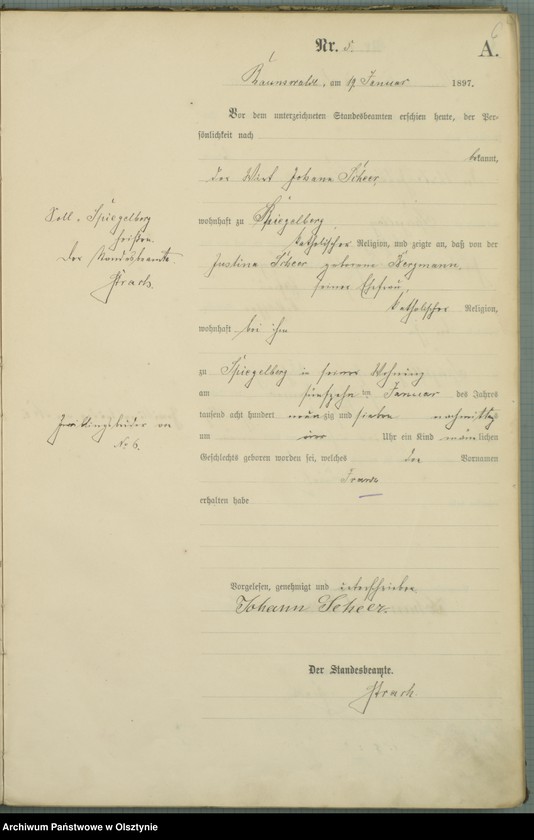 6
Nr. 5.
A.
Braunswalde, am 19 Januar 1897.
Vor dem unterzeichneten Standesbeamten erschien heute, der Per-
sönlichkeit nach
bekannt,
der Wirt Johann Scheer,
wohnhaft zu Spiegelberg
katholischer Religion, und zeigte an, daß von der
Justina Scheer geborene Bergmann,
seiner Ehefrau,
katholischer Religion,
wohnhaft bei ihm
zu Spiegelberg in seiner Wohnung
am fünfzehn ten Januar des Jahres
tausend acht hundert neunzig und sieben nachmittags
um Uhr ein Kind männlichen
Geschlechts geboren worden sei, welches den Vornamen
Franz
erhalten habe
Vorgelesen, genehmigt und unterschrieben
Johann Scheer.
Der Standesbeamte.
Soll " Spiegelberg
heißen.
Der Standesbeamte
No 6.
Archiwum Państwowe w Olsztynie